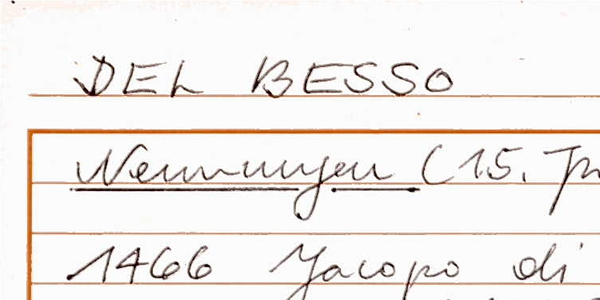 DEL BESSO
Nennungen (15. Jh
1466 Jacopo di